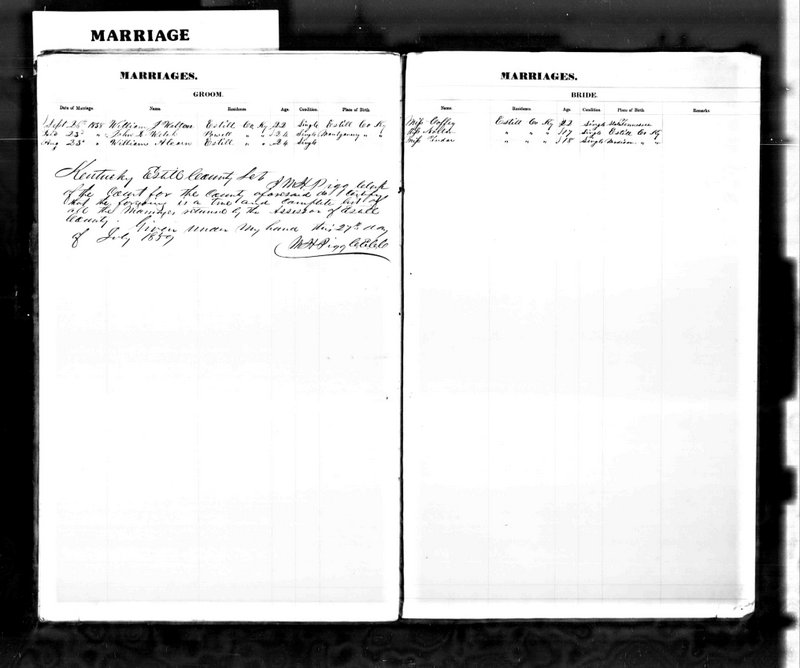 MARRIAGE
MARRIAGES.
GROOM.
Date of Marriage Name Residence Age. Condition. Place of Birth
Sept 26th 1858 William J Walton Estill Co Ky 22 Single Estill Co Ky
23d " John Welch Powell " " 24 Single Montgomery " "
Aug 23d " William Alcorn Estill " " 24 Single
Kentucky Estill County Sct
I W H Pigg Clerk
of the Court for the County aforesaid do certify
that the foregoing is a true and complete list of
all the Marriages returned by the Assessor of Estill
County. Given under my hand this 27th day
of July 1859
W H Pigg
MARRIAGES.
BRIDE.
Name Residence Age Condition Place of Birth Remarks
Miss Coffey Estill Co Ky 22 Single Tennessee
Miss " " " 17 Single Estill Co Ky
Miss " " " 18 Single Madison " "